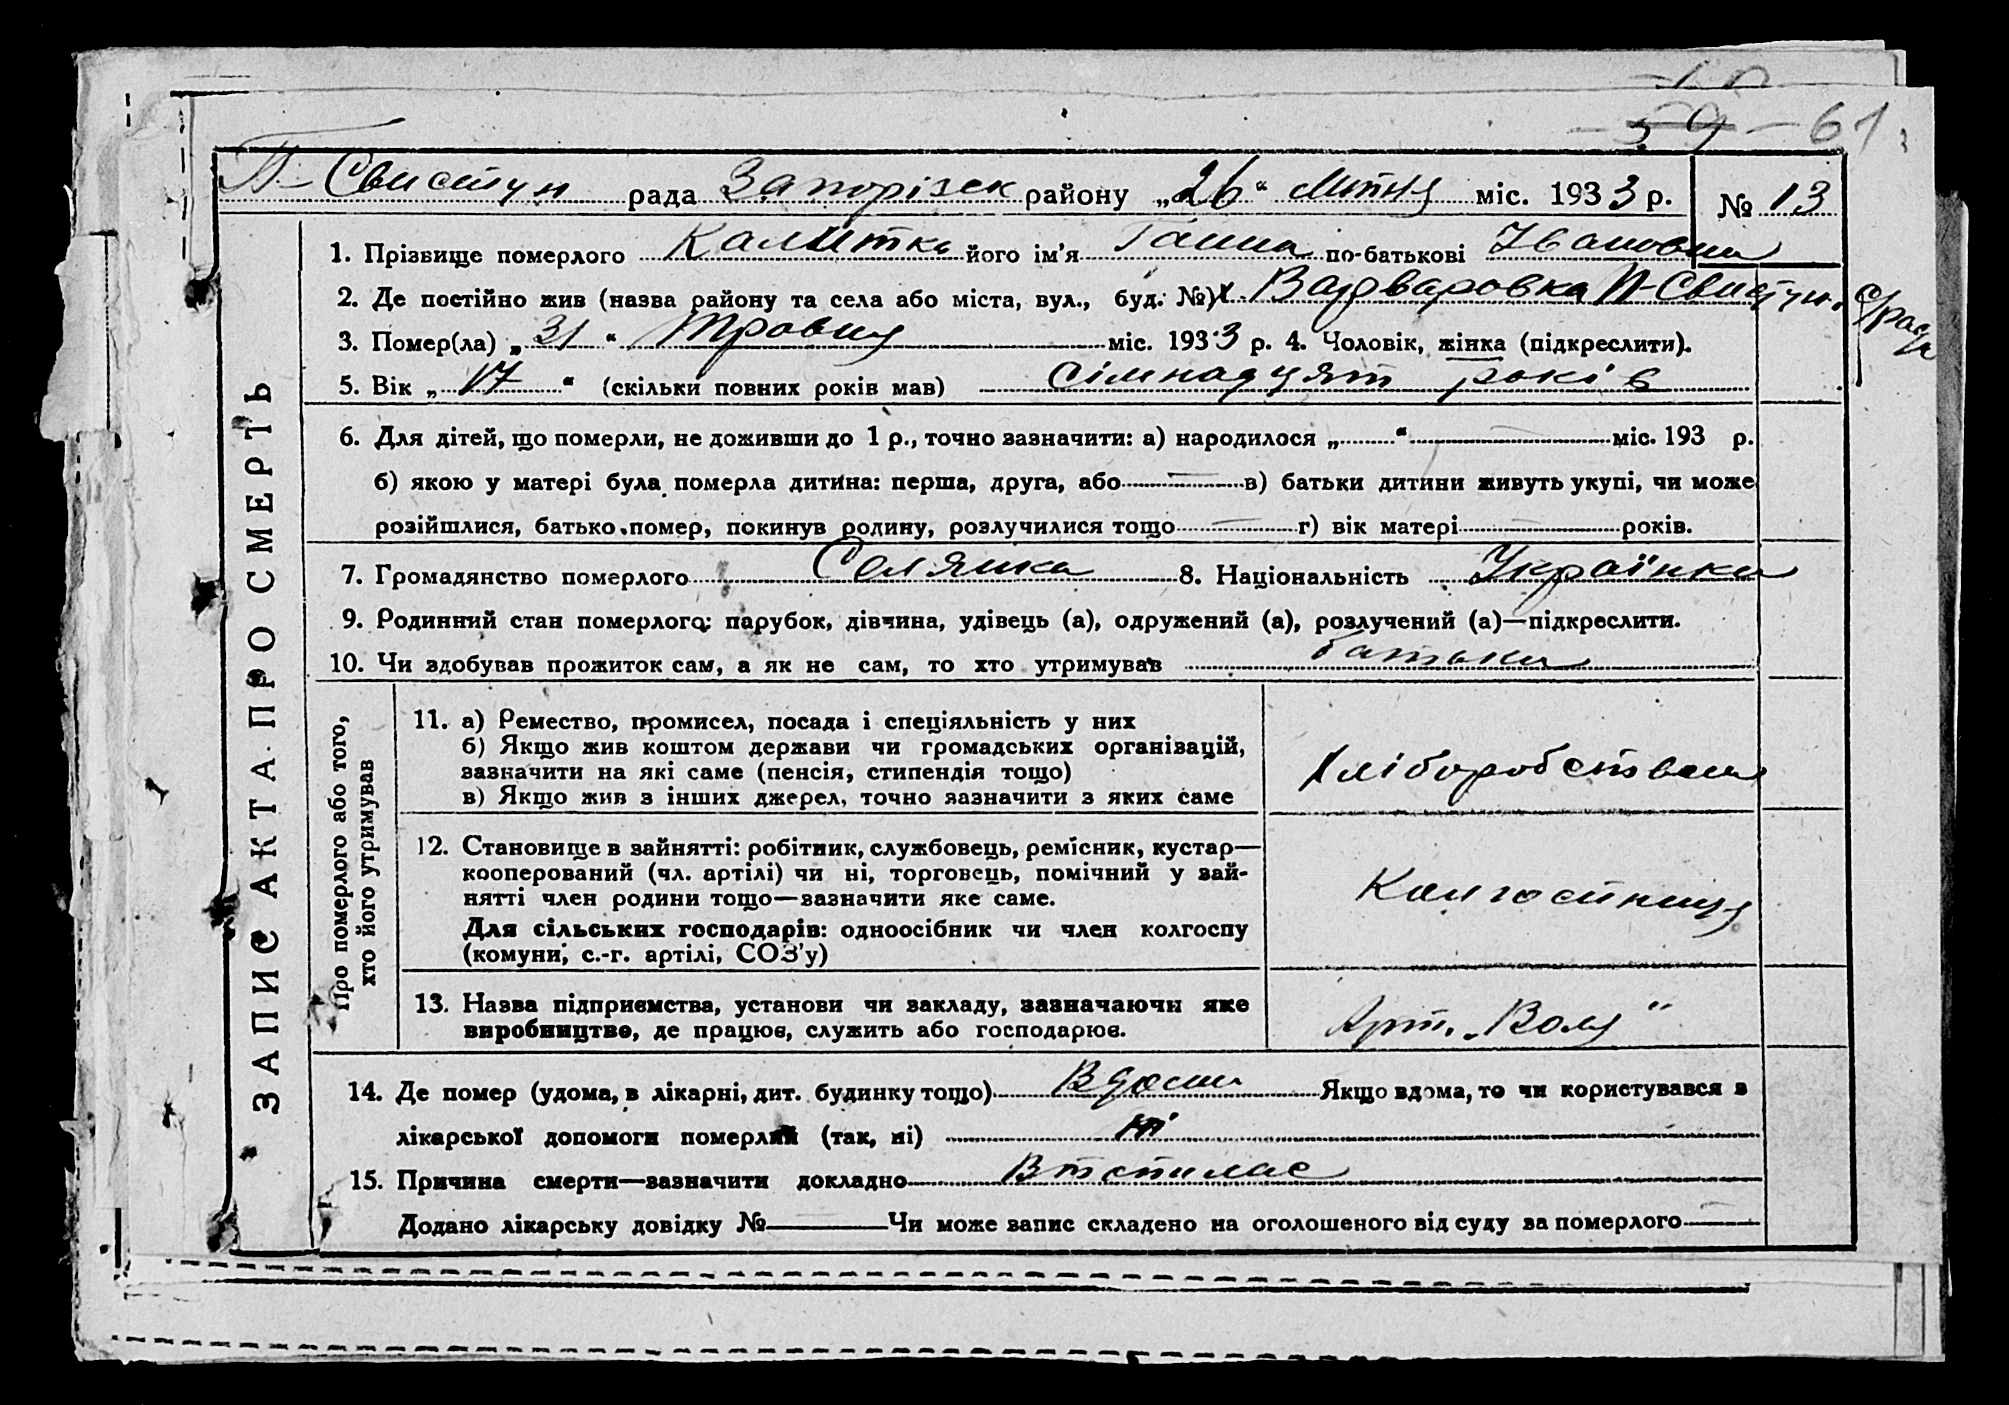 59 – 61
П-Свистун рада Запорізьк району „26“ Липня міс. 1933 р. № 13
1. Прізвище померлого Калитка його ім’я Ганна по-батькові Івановна
2. Де постійно жив (назва району та села або міста, вул., буд. №) х. Варваровка П-Свистун. с/рада
3. Помер(ла) „31“ Травня міс. 1933 р. 4. Чоловік, жінка (підкреслити).
5. Вік „17“ (скільки повних років мав) сімнадцят років
6. Для дітей, що померли, не доживши до 1 р., точно зазначити: а) народилося „ “ міс. 193 р.
б) якою у матері була померла дитина: перша, друга, або — в) батьки дитини живуть укупі, чи може
розійшлися, батько помер, покинув родину, розлучилися тощо — г) вік матері — років.
7. Громадянство померлого Селянка 8. Національність Українка
9. Родинний стан померлого: парубок, дівчина, удівець (а), одружений (а), розлучений (а)—підкреслити.
10. Чи здобував прожиток сам, а як не сам, то хто утримував батьки
ЗАПИС АКТА ПРО СМЕРТЬ
Про померлого або того,
хто його утримував
11. а) Ремество, промисел, посада і спеціяльність у них
б) Якщо жив коштом держави чи громадських організацій,
зазначити на які саме (пенсія, стипендія тощо)
в) Якщо жив з інших джерел, точно зазначити з яких саме
хліборобством
12. Становище в зайнятті: робітник, службовець, ремісник, кустар—
кооперований (чл. артілі) чи ні, торговець, помічний у зай-
нятті член родини тощо—зазначити яке саме.
Для сільських господарів: одноосібник чи член колгоспу
(комуни, с.-г. артілі, СОЗ’у)
13. Назва підприємства, установи чи закладу, зазначаючи яке
виробництво, де працює, служить або господарює.
Арт. „Воля“
14. Де помер (удома, в лікарні, дит. будинку тощо) Вдома Якщо вдома, то чи користувався в
лікарської допомоги померлий (так, ні) ні
15. Причина смерти—зазначити докладно
Додано лікарську довідку № — Чи може запис складено на оголошеного від суду за померлого —